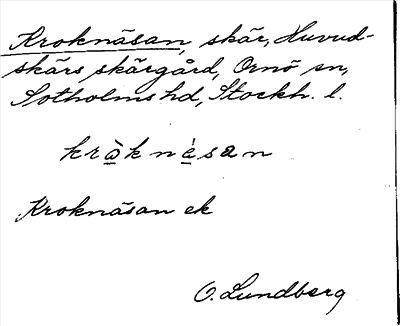 Kroknäsan, skär, Huvud-
skärs skärgård, Ornö sn,
Sotholms hd, Stockh. l.
kròknèsan
Kroknäsan ek
O. Lundberg